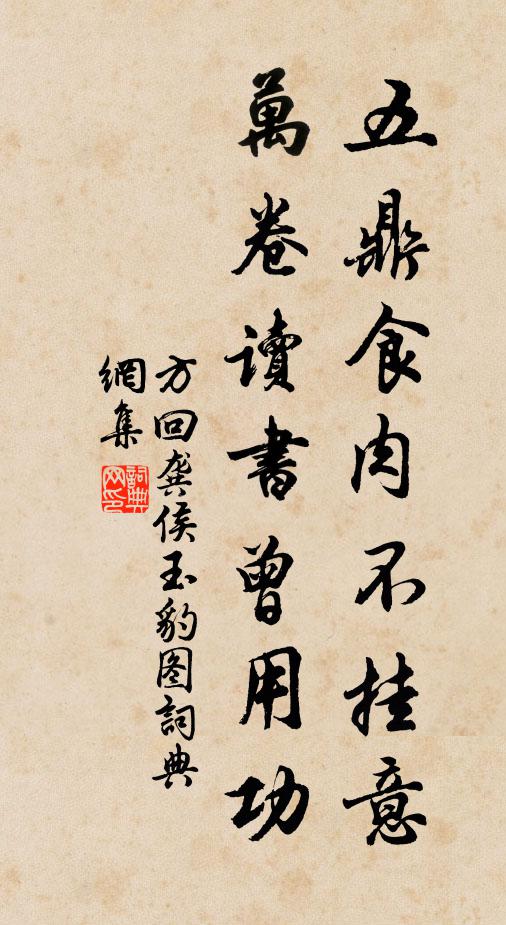 五鼎食肉不挂意
萬卷讀書曾用功
方回龚侯玉豹图詞典
網集
詞典
网印